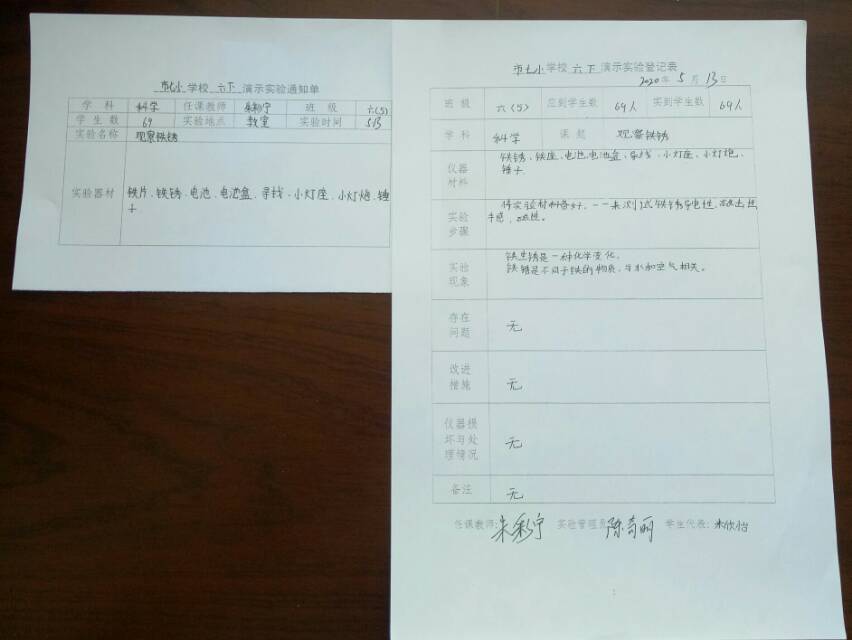 市七小学校 六下 演示实验通知单
学 科 科学 任课教师 朱彩宁 班 级 六(5)
学生数 69 实验地点 教室 实验时间 5.13
实验名称 观察铁锈
实验器材 铁片、铁锈、电池、电池盒、导线、小灯座、小灯炮、锤
子
市七小学校 六下 演示实验登记表
2020年 5 月 13 日
班 级 六(5) 应到学生数 69人 实到学生数 69人
学 科 科学 课 题 观察铁锈
仪器
材料
铁锈、铁座、电池、电池盒、导线、小灯座、小灯炮、
锤子。
实验
步骤
将实验材料备好,一一来测试铁锈导电性、敲击
手感、磁性。
实验
现象
铁生锈是一种化学变化,
铁锈是不同于铁的物质,与水和空气相关。
存在
问题
无
改进
措施
无
仪器损
坏与处
理情况
无
备注 无
任课教师:朱彩宁 实验管理员 陈奇丽 学生代表:朱欣怡